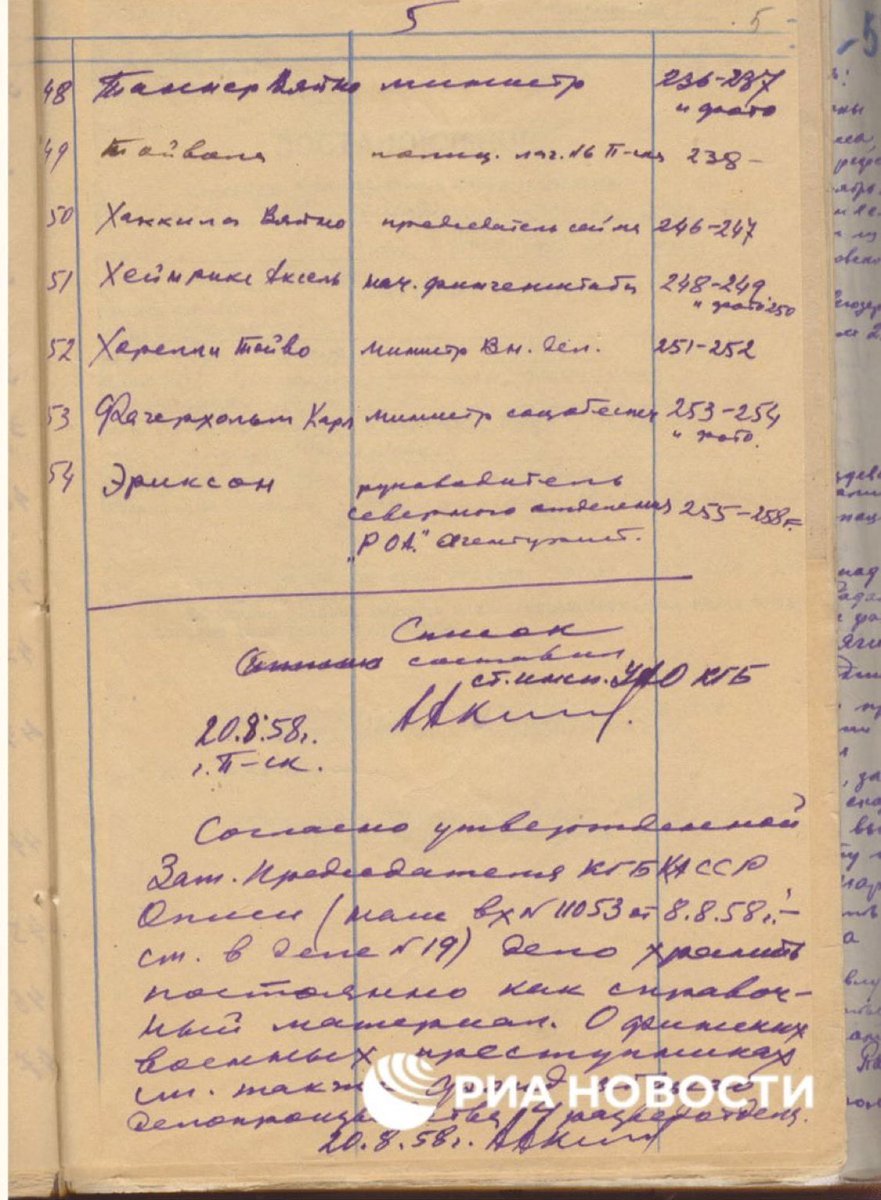 5
5
48 Таннер Вяйно министр 236-237
и фото
49 Тойвола полиц. лаг. №6 П-ска 238-
50 Хаккила Вяйно председатель сейма 246-247
51 Хейнрикс Аксель нач. финген­штаба 248-249
и фото 250
52 Харелли Тойво министр Вн. дел. 251-252
53 Фагерхольм Карл министр соцобеспеч 253-254
и фото.
54 Эриксон руководитель
северного отделения 255-258
"РОА"
Список
составил
ст. инсп. УАО КГБ
20.8.58г.
г. П-ск.
Согласно утвержденной
Зам. Председателя КГБ КАССР
Описи (наш вх № 11053 от 8.8.58г.-
см. в деле №19) дело хранить
постоянно как справоч-
ный материал. О финских
военных преступниках
см. также фонд
делопроизводства
20.8.58г.
РИА НОВОСТИ